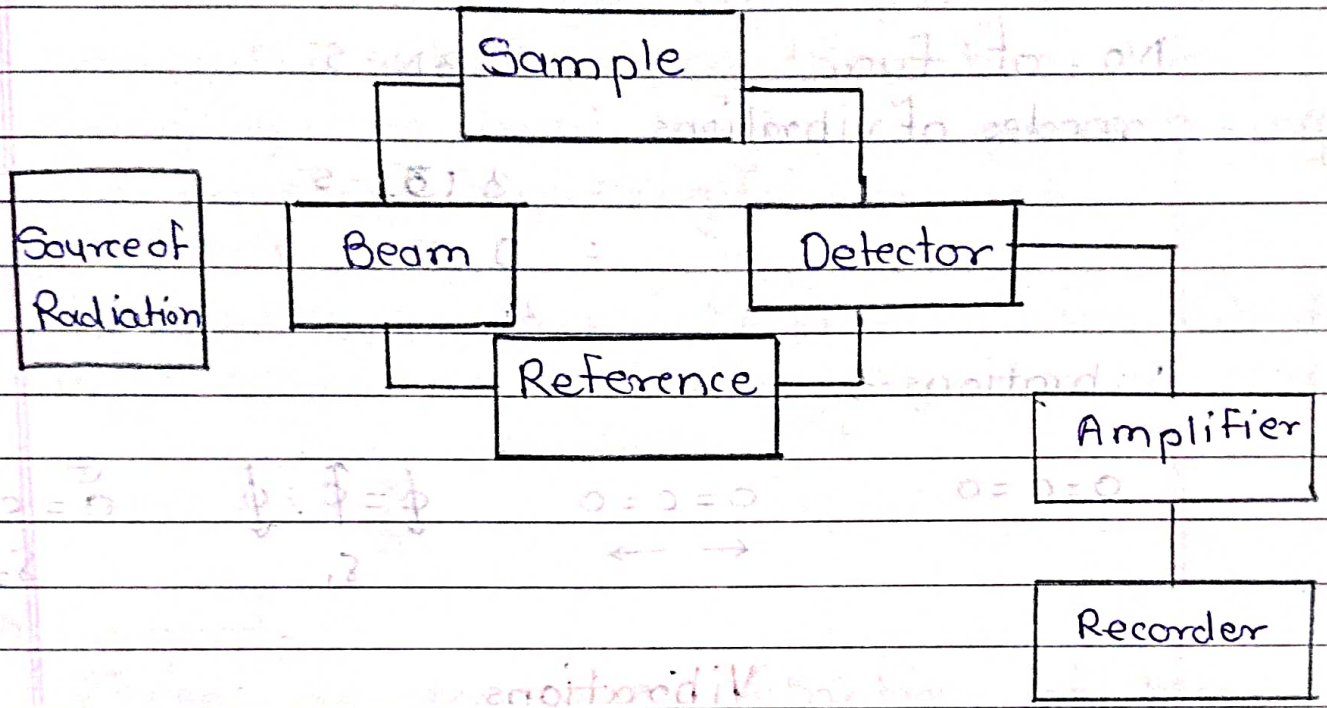 Sample
Source of
Radiation
Beam
Detector
Reference
Amplifier
Recorder